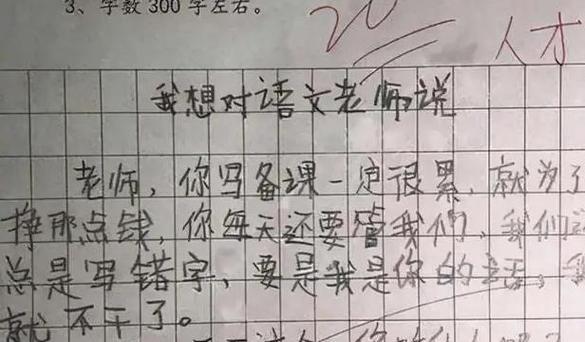 3、字数300字左右。
20
人才
我想对语文老师说
老师,你写备课一定很累,就为了
挣那点钱,你每天还要管我们,我们
总是写错字,要是我是你的话,我
就不干了。